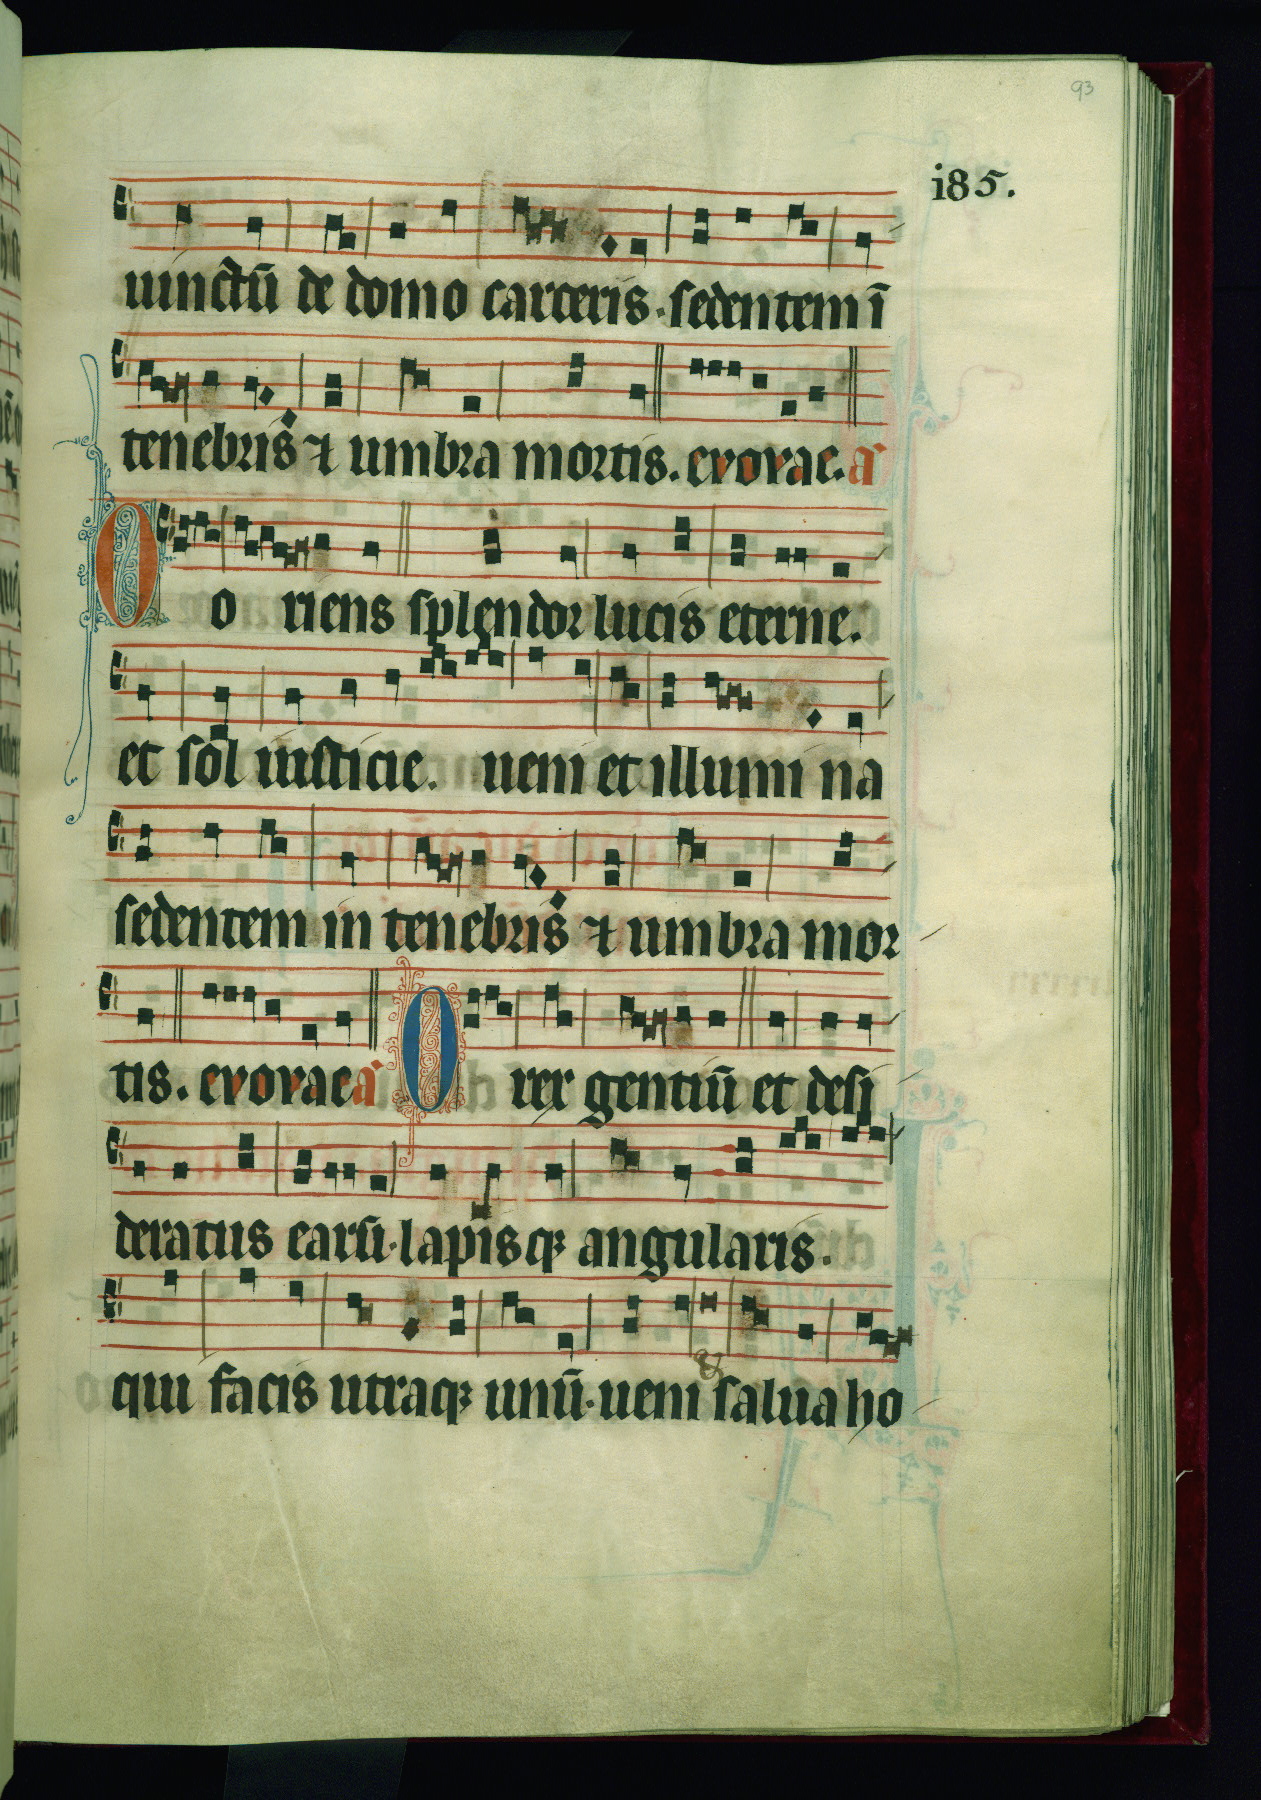 93
i85.
uinctū de domo carceris. sedentem ī
tenebris ⁊ umbra mortis. evovae. a
O oriens splendor lucis eterne.
et sol iusticie. ueni et illumina
sedentem in tenebris ⁊ umbra mor
tis. evovae a O rex gentiū et desi
deratus earū. lapisqꝫ angularis.
qui facis utraqꝫ unū. ueni &
salua ho